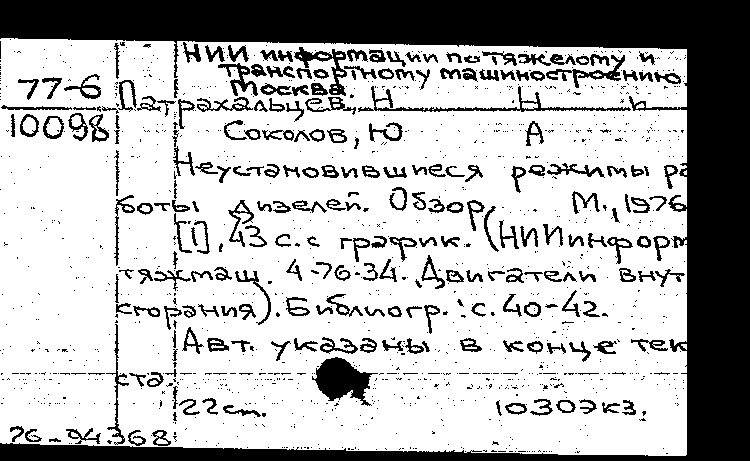 НИИ информации по тяжелому и
транспортному машиностроению.
Москва.
77-6
Патрахальцев, Н Н и
10098
Соколов, Ю А
Неустановившиеся режимы ра
боты дизелей. Обзор. М., 1976
[1], 43 с. с график. (НИИинформ
тяжмаш. 4-76-34. Двигатели внут
сгорания). Библиогр.: с. 40-42.
Авт. указаны в конце тек
ста.
22 см. 1030 экз.
76-94368